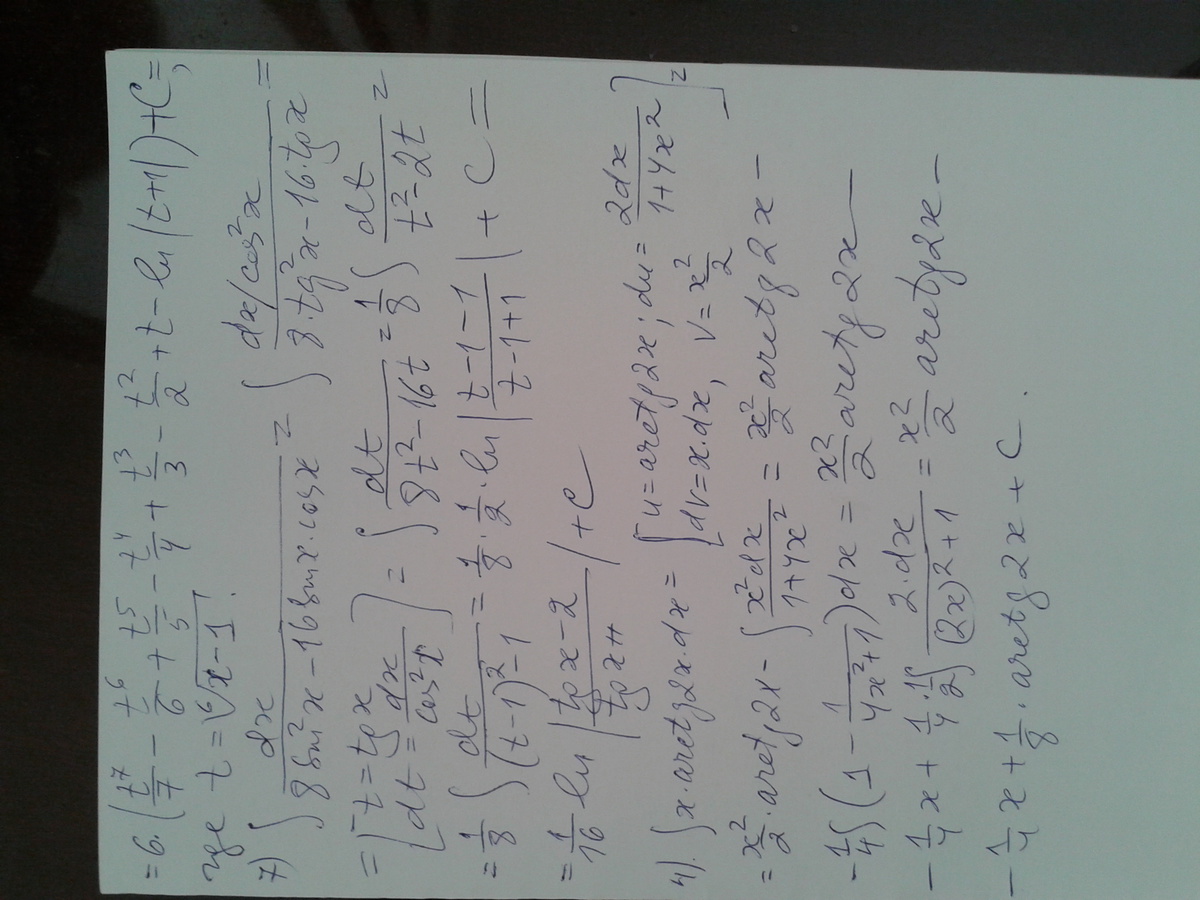 = 6·(t⁷/7 − t⁶/6 + t⁵/5 − t⁴/4 + t³/3 − t²/2 + t − ln|t+1|) + C =,
где t = ⁶√(x−1).
7) ∫ dx/(8 sin²x − 16 sinx·cosx) = ∫ (dx/cos²x)/(8·tg²x − 16·tgx) =
= [t = tgx
dt = dx/cos²x] = ∫ dt/(8t² − 16t) = 1/8 ∫ dt/(t² − 2t) =
= 1/8 ∫ dt/((t−1)² − 1) = 1/8 · 1/2 · ln|(t−1−1)/(t−1+1)| + C =
= 1/16 ln|(tgx−2)/tgx| + C
4). ∫ x·arctg2x·dx = [u = arctg2x; du = 2dx/(1+4x²)
dv = x·dx, v = x²/2] =
= x²/2 · arctg2x − ∫ x²dx/(1+4x²) = x²/2 arctg2x −
− 1/4 ∫ (1 − 1/(4x²+1)) dx = x²/2 arctg2x −
− 1/4 x + 1/4 · 1/2 ∫ 2·dx/((2x)²+1) = x²/2 arctg2x −
− 1/4 x + 1/8 · arctg2x + C.